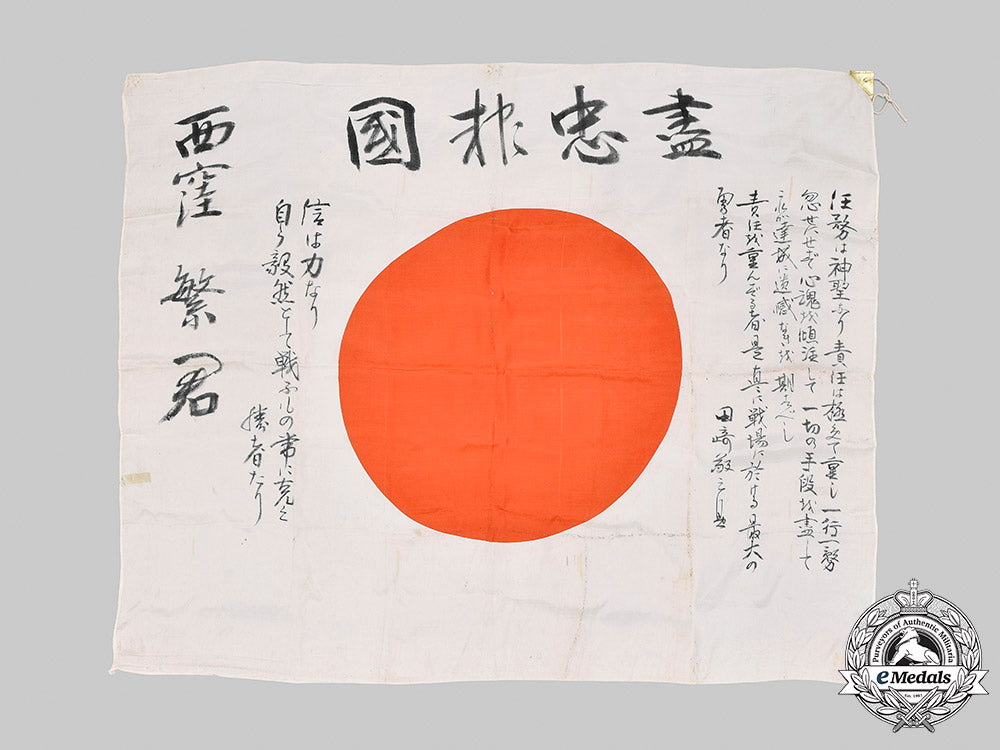 盡忠報國
任務は神聖なり責任は極めて重し一行一務
忽せにせず心魂を傾注して一切の手段を盡して
之が達成に遺憾なきを期すべし
責任を重んずる者是真に戦場に於ける最大の
勇者なり
田﨑敬三
信は力なり
自ら毅然として戦ふもの常に克く
勝者たり
西窪 繁君
Purveyors of Authentic Militaria
eMedals